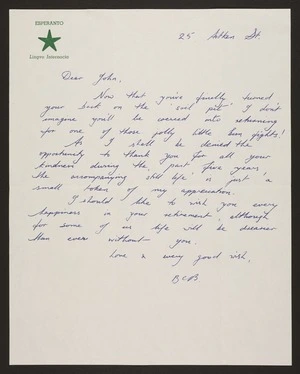 ESPERANTO
Lingvo Internacia
25 Aitken St.
Dear John,
Now that you've finally turned
your back on the 'soul pit' I don't
imagine you'll be coerced into returning
for one of those jolly little bun fights!
As I shall be denied the
opportunity to thank you for all your
kindness during the past five years,
the accompanying 'still life' is just a
small token of my appreciation.
I should like to wish you every
happiness in your retirement, although
for some of us life will be drearier
than ever without you.
Love & every good wish,